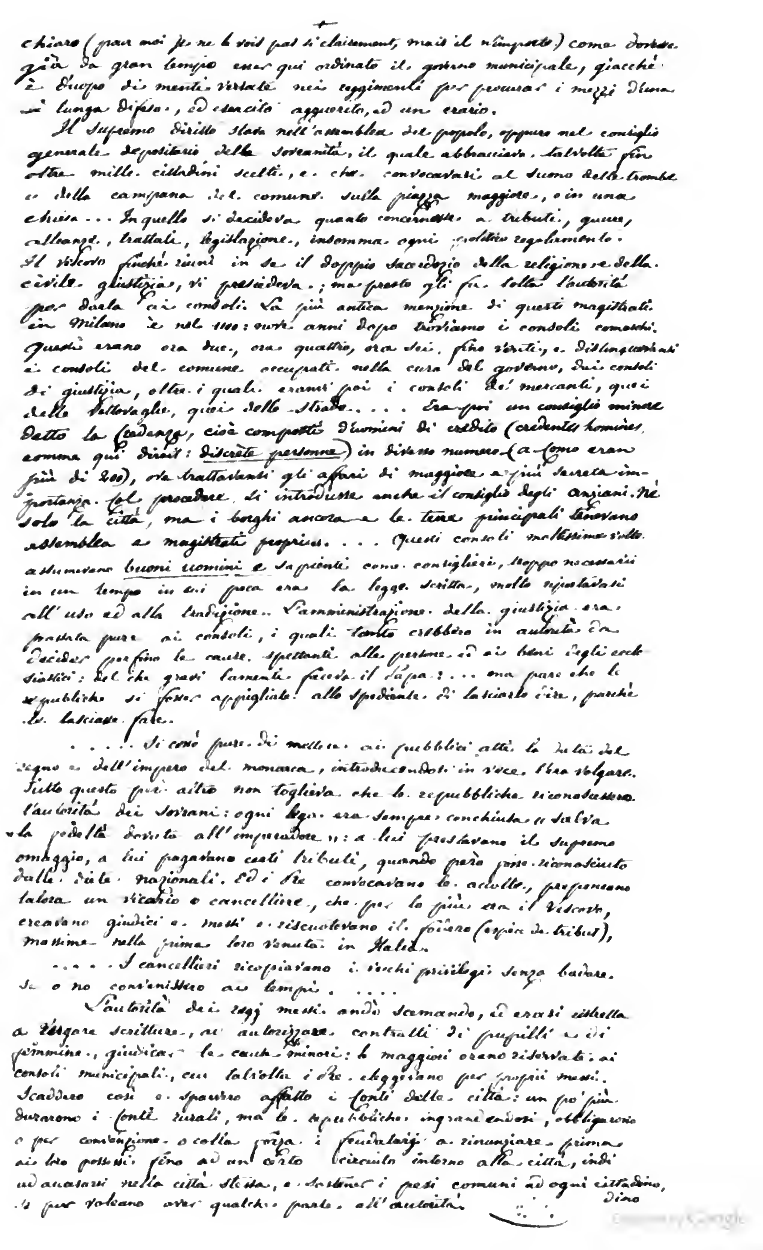 +
chiaro (pour moi je ne le vois pas si clairement, mais il n'importe) come dovesse
già da gran tempo esser qui ordinato il governo municipale, giacchè
è d'uopo di mente versate nei reggimenti per procurar i mezzi d'una
sì lunga difesa, ed esercito agguerito, ed un erario.
Il supremo diritto stava nell'assemblea del popolo, oppure nel consiglio
generale depositario della sovranità, il quale abbracciava talvolta fin
oltre mille cittadini scelti, e che convocavasi al suono delle trombe
e della campana del comune sulla piazza maggiore, o in una
chiesa... In quello si decideva quanto concernesse a tributi, guerre,
alleanze, trattati, legislazione, insomma ogni politico regolamento.
Il vescovo finchè riunì in se il doppio sacerdozio della religione e della
civile giustizia, vi presiedeva; ma presto gli fu tolta l'autorità
per darla ai consoli. La più antica menzione di questi magistrati
in Milano è nel 1100: nove anni dopo troviamo i consoli comaschi.
Questi erano ora due, ora quattro, ora sei, fino venti, e distinguevansi
i consoli del comune occupati nella cura del governo, dai consoli
di giustizia, oltre i quali eranvi poi i consoli de' mercanti, quei
delle vettovaglie, quei delle strade..... Era poi un consiglio minore
detto la Credenza, cioè composto d'uomini di credito (credentes homines,
comme qui dirait: discrète personne) in diverso numero (a Como eran
più di 200), ove trattavansi gli affari di maggiore e più secreta im-
portanza. Col procedere si introdusse anche il consiglio degli anziani. Nè
solo la città, ma i borghi ancora e le terre principali tenevano
assemblea e magistrati proprii.... Questi consoli moltissime volte
assumevano buoni uomini e sapienti come consiglieri, troppo necessarii
in un tempo in cui poca era la legge scritta, molto riportavasi
all'uso ed alla tradizione. L'amministrazione della giustizia era
passata pure ai consoli, i quali tanto crebbero in autorità da
decider perfino le cause spettanti alle persone ed ai beni degli eccle-
siastici: del che gravi lamenti faceva il Papa:... ma pare che le
repubbliche si fosser appigliate allo spediente di lasciarlo dire, perchè
le lasciasse fare.
..... Si cessò pure di mettere ai pubblici atti la data del
regno e dell'impero del monarca, introducendosi in vece l'era volgare.
Tutto questo per altro non toglieva che le repubbliche riconoscessero
l'autorità dei sovrani: ogni lega era sempre conchiusa « salva
la fedeltà dovuta all'imperadore »: a lui prestavano il supremo
omaggio, a lui pagavano certi tributi, quando però fosse riconosciuto
dalle diete nazionali. Ed i Re convocavano le accolte, proponeano
talora un vicario o cancelliere, che per lo più era il Vescovo,
creavano giudici e messi e riscuotevano il fodero (espèce de tribut),
massime nella prima loro venuta in Italia.
..... I cancellieri ricopiavano i vecchi privilegi senza badare
se o no convenissero ai tempi.....
L'autorità dei regj messi andò scemando, ed erasi ristretta
a vergare scritture, ad autorizzare contratti di pupilli e di
femmine, giudicar le cause minori: le maggiori erano riservate ai
consoli municipali, cui talvolta i Re eleggevano per proprii messi.
Scaddero così e sparvero affatto i Conti delle città: un po' più
durarono i Conti rurali, ma le repubbliche ingrandendosi, obbligarono
o per convenzione o colla forza i feudatarj a rinunziare prima
ai loro possessi fino ad un certo circuito intorno alla città, indi
ad accasarsi nella città stessa, e sostener i pesi comuni ad ogni cittadino,
se pur voleano aver qualche parte all'autorità.
dino
Google